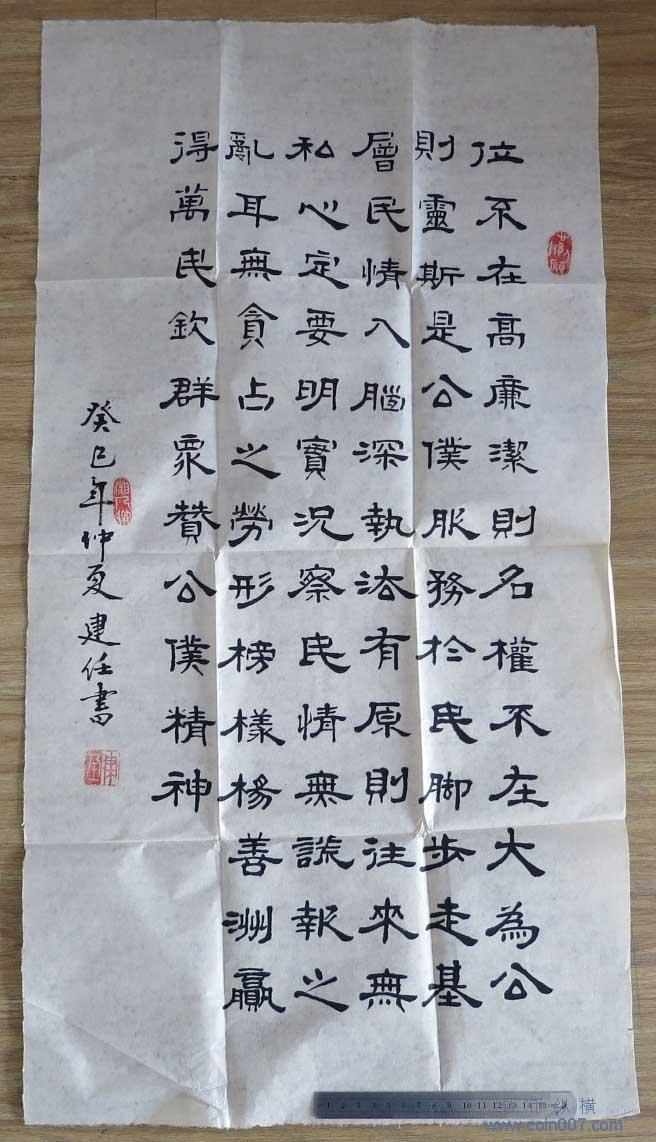 位不在高廉潔則名權不在大為公
則靈斯是公僕服務於民脚步走基
層民情入腦深執法有原則往來無
私心定要明實況察民情無謊報之
亂耳無貪占之勞形榜樣楊善洲贏
得萬民欽群眾贊公僕精神
癸巳年仲夏建任書
币纵横
www.coin007.com